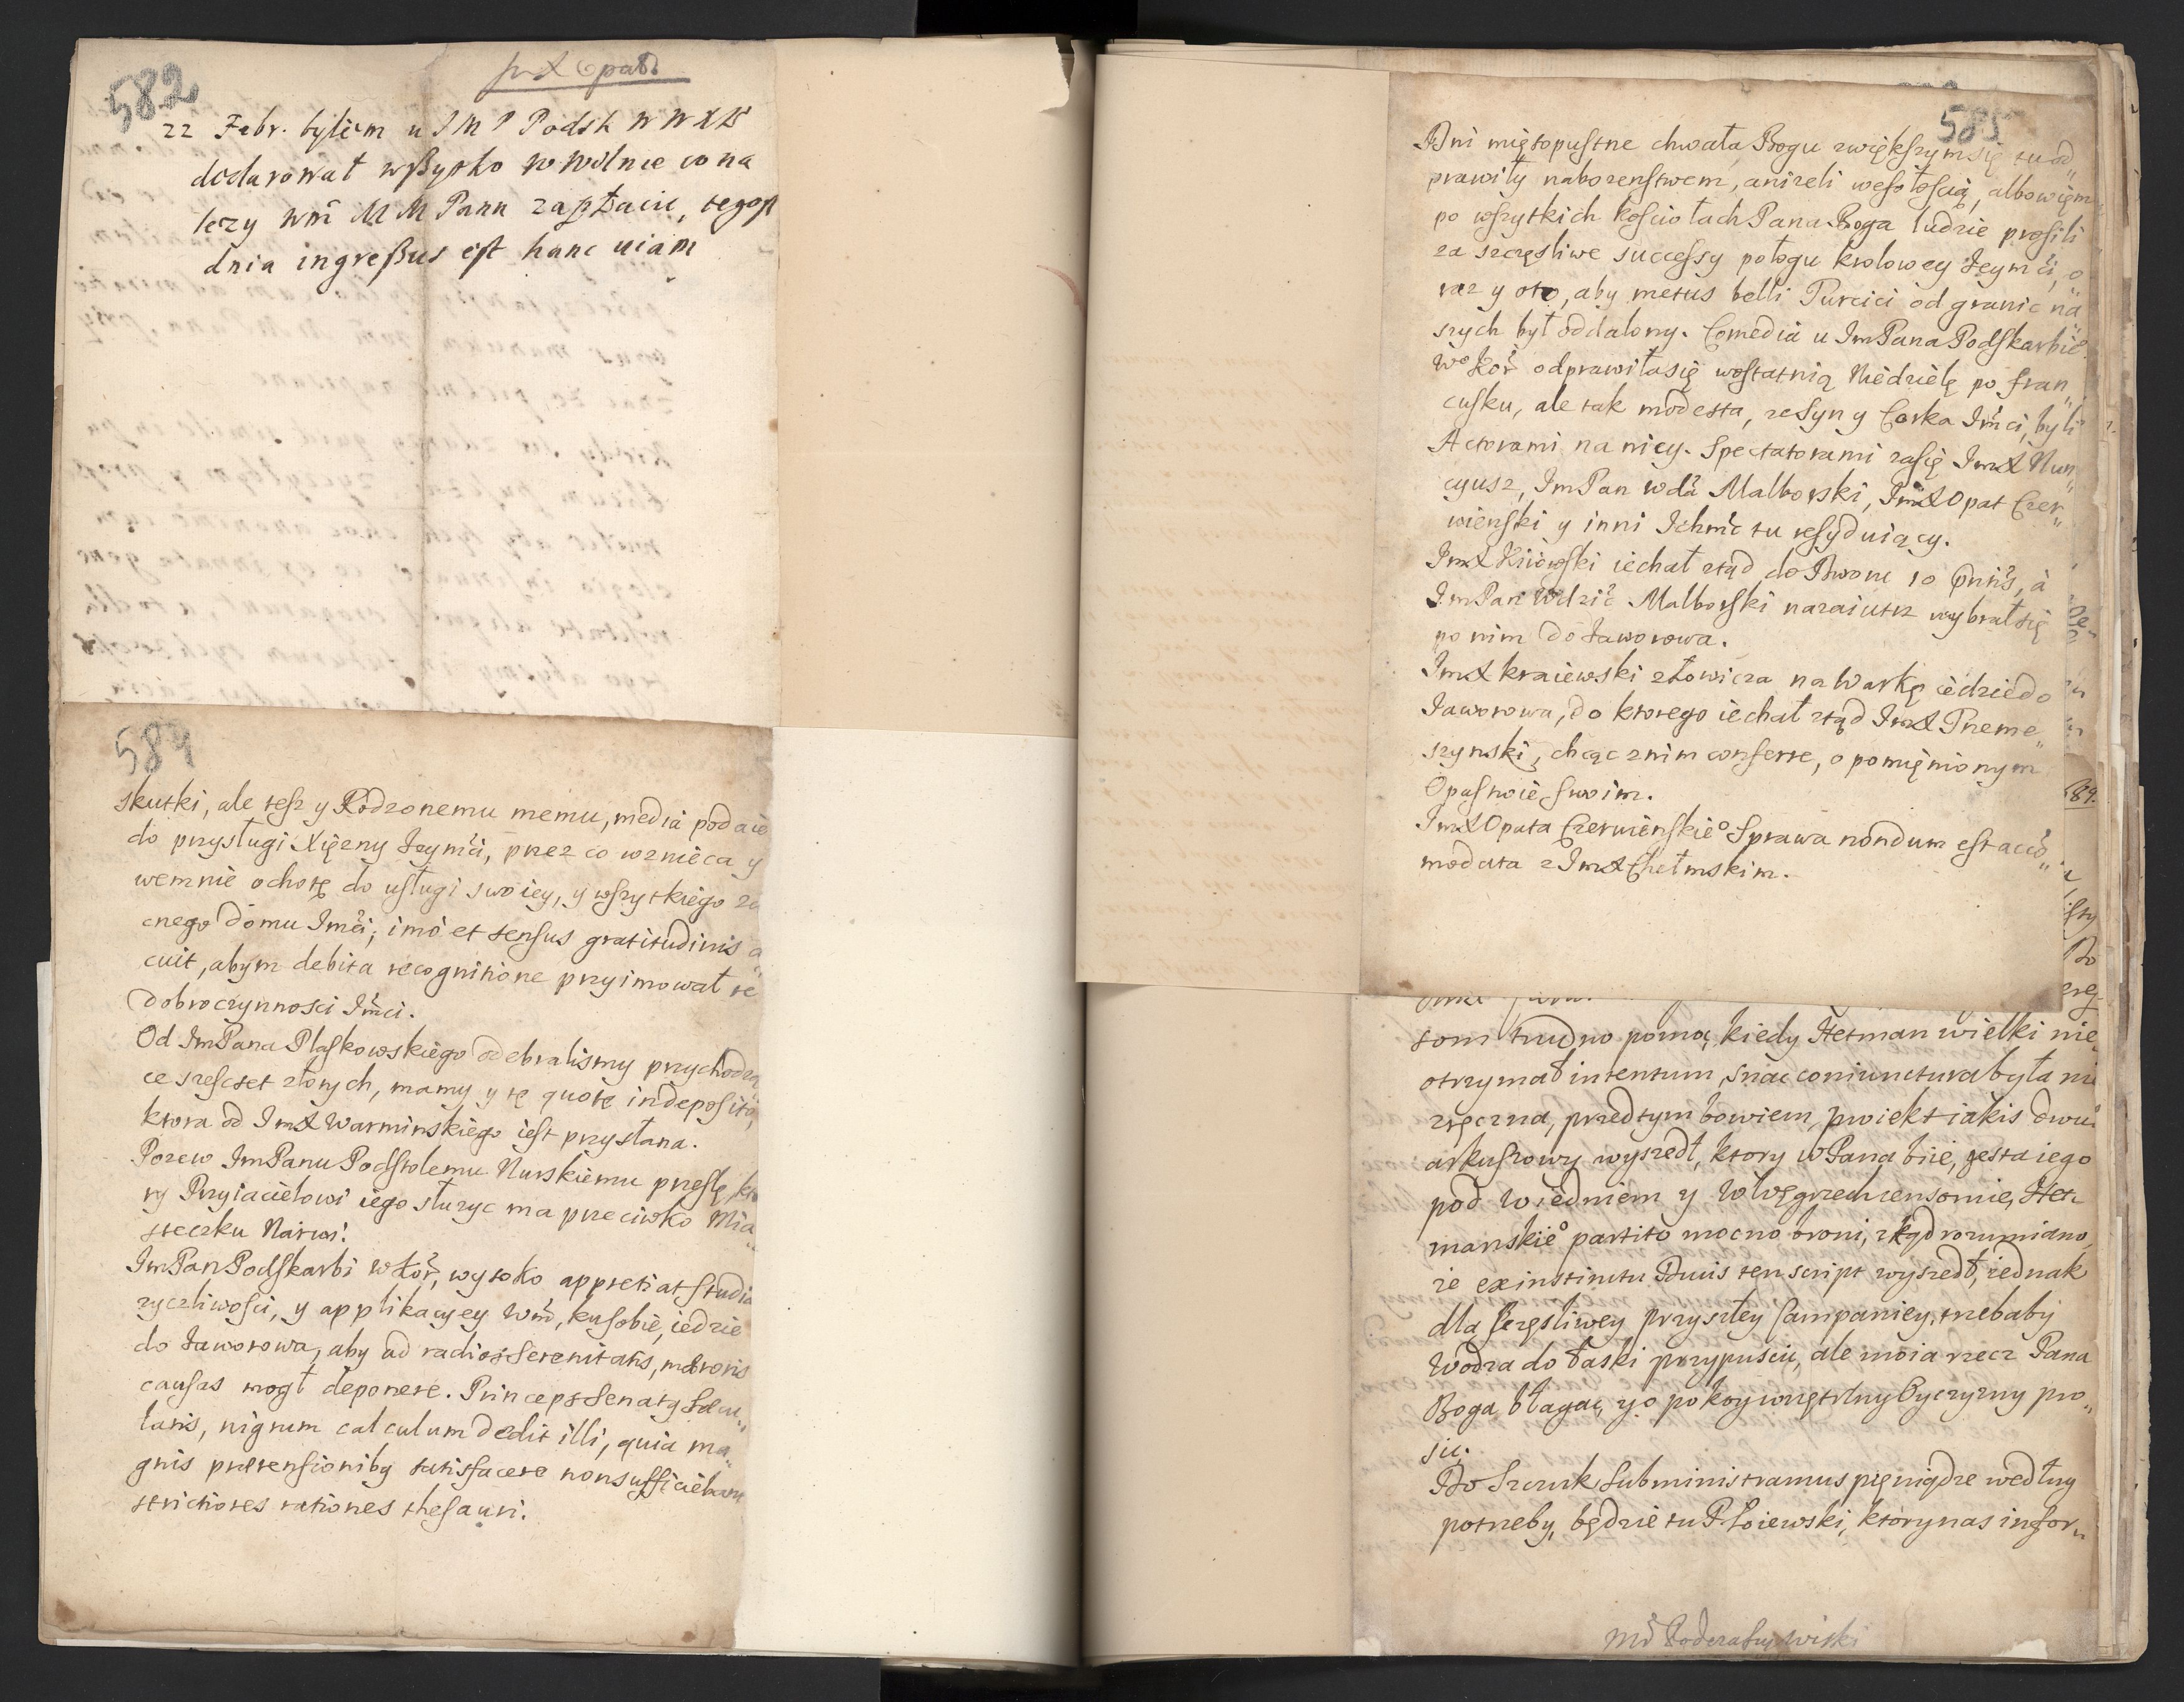 582
22 Febr. byłem u J M P Podsk W W X Lit
declarował wszytko w Wilnie co na
leży Wm̃ M M Panu zapłacić, tegoß
dnia ingreßus est hanc uiam
584
skutki, ale tesz y Rodzonemu memu, media podaie
do przysługi Xiężny Jeymći, przez co wznieca y
wemnie ochotę do usługi swoiey, y wszytkiego za
cnego domu Jmći; imò et sensus gratitudinis a
cuit, abym debita recognitione przyimował te
dobroczynnosci Jmći.
Od JmPana Plaskowskiego odebralismy przychodzą
ce szescset złotych, mamy y tę quotę in deposito,
ktora od JmX Warminskiego iest przysłana.
Pozew JmPanu Podstolemu Nurskiemu przeslę, kto
ry Przyiacielowi iego służyc ma przeciwko Mia„
steczku Narwi.
JmPan Podskarbi WKor, wysoko appretiat studia
zyczliwosci, y applikacyey Wm̃, ku sobie, iedzie
do Jaworowa, aby ad radios Serenitatis, mæroris
causas mogł deponere. Princeps Senatq Sæcu„
laris, nigrum calculum dedit illi, quia ma„
gnis prætensionibq satisfacere non sufficiebant
strictiores rationes thesauri.
585
Dni mięsopustne chwała Bogu zwiększym się tu od„
prawiły naborenstwem, anizeli wesołoscią, albowięm
po wszytkich kosciołach Pana Boga ludzie prosili
za szczęsliwe successy połogu krolowey Jeymći, o„
raz y oto, aby metus belli Turcici od granic na„
szych był oddalony. Comedia u JmPana Podskarbieo
Wo Kor odprawiła się wostatnią Niedzielę po fran„
cusku, ale tak modesta, ze Syn y Corka Jmći, byli
Actorami na niey. Spectatorami zasię JmX Nun„
cyusz, JmPan Wda Malborski, JmX Opat Czer„
wienski y inni Ichmć tu resyduiący.
JmX Kiiowski iechał ztąd do Dworu 10 præntis, à
JmPan Wdzić Malborski nazaiutrz wybrał się
po nim do Jaworowa.
JmX Kraiewski z Łowicza na Warkę iedzie do
Jaworowa, do ktorego iechał ztąd JmX Przeme„
szynski, chcąc z nim conferre, o pomięnionym
Opastwie swoim.
JmX Opata Czerwienskieo Sprawa nondum est acco„
modata z JmX Chełmskim.
tom trudno pomoc, kiedy Hetman wielki nie„
otrzymał intentum, snac coniunctura była nie
zręczna, przed tym bowiem, proiekt iakis dwu„
arkuszowy wyszedł, ktory w Pana biie, gesta iego
pod Wiedniem y w Węgrzech censorie, Het„
manskieo partito mocno broni, zkąd rozumiano,
ze ex instinctu Ducis ten script wyszedł, iednak
dla szczęsliwey przyszłey Campaniey, trzebaby
Wodza do łaski przypuscic, ale moia rzecz Pana
Boga błagac, y o pokoy wnętrzny Oyczyzny pro„
sić.
Do Szczuk subministramus pięniądze według
potrzeby, będzie tu P Łoiewski, ktory nas infor„